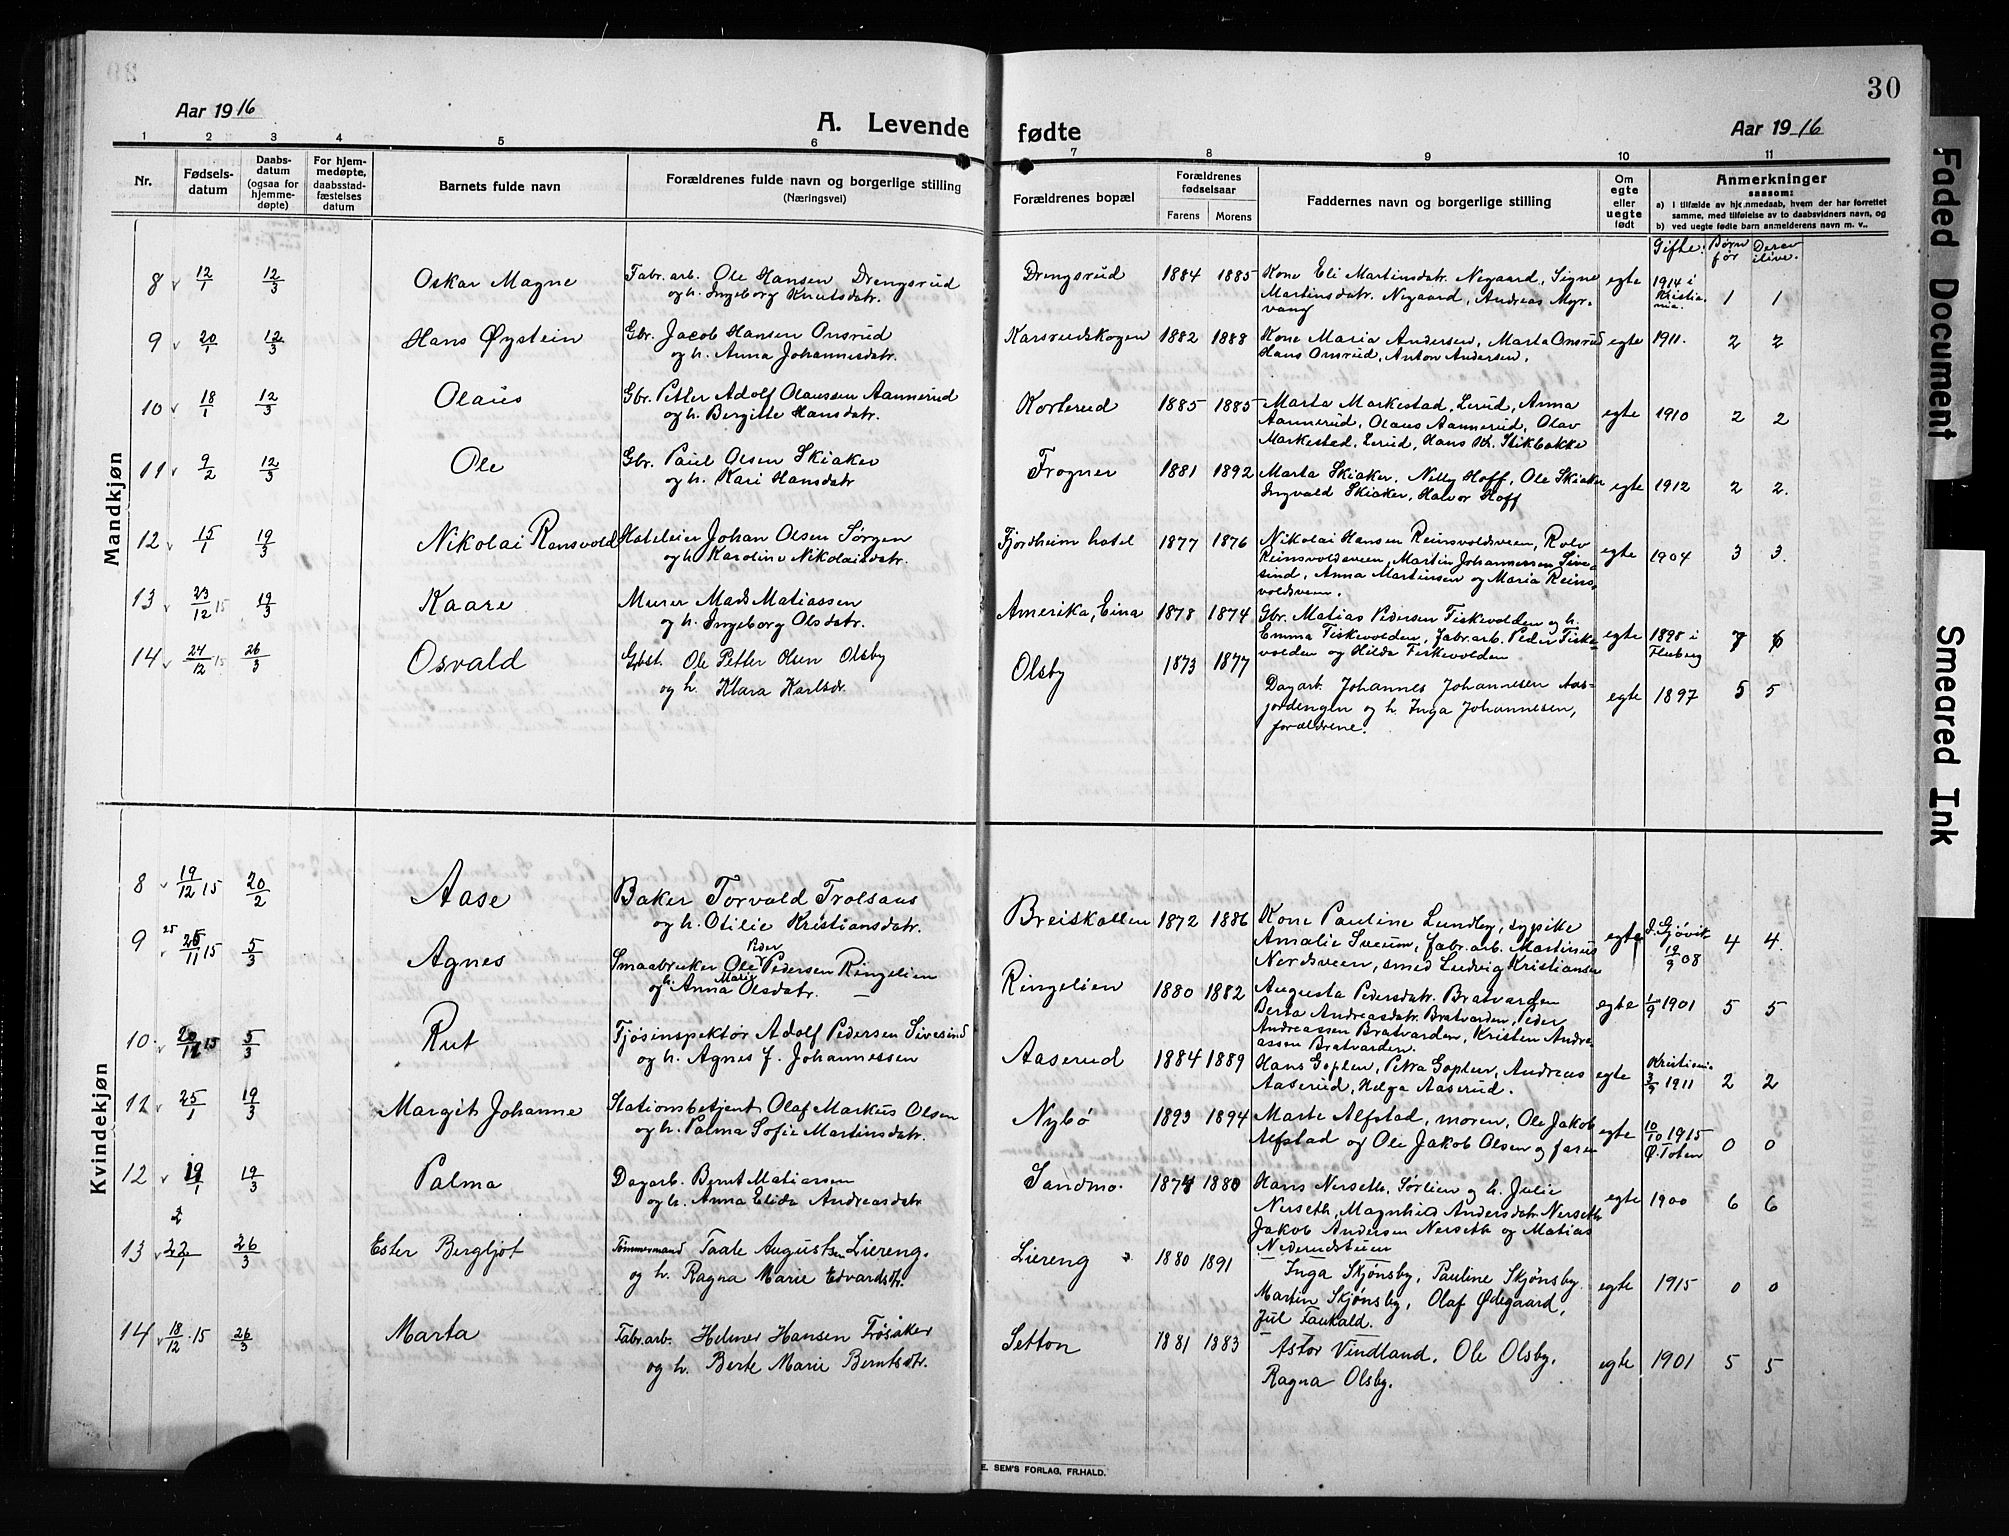 30
Aar 1916
A. Levende fødte
Aar 1916
1 2 3 4 5 6 7 8 9 10 11
Nr.
Fødsels-
datum
Daabs-
datum
(ogsaa for
hjemme-
døpte)
For hjem-
medøpte,
daabsstad-
fæstelses
datum
Barnets fulde navn
Forældrenes fulde navn og borgerlige stilling
(Næringsvei)
Forældrenes bopæl
Forældrenes
fødselsaar
Farens Morens
Faddernes navn og borgerlige stilling
Om
egte
eller
uegte
født
Anmerkninger
saasom:
a) I tilfælde av hjemmedaab, hvem der har forrettet
samme, med tilføielse av to daabsvidners navn, og
b) ved uegte fødte barn anmelderens navn m. v..
Gifte: Børn før Derav ilive.
Mandkjøn
8 12/1 12/3 Oskar Magne Fabr. arb. Ole Hansen Drengsrud Drengsrud 1884 1885 Kone Eli Martinsdatr. Nygaard, Signe egte 1914 i
og h. Ingeborg Knutsdatr. Martinsdatr. Nygaard, Andreas Myr- Kristia- 1 1
vang nia.
9 20/1 12/3 Hans Øystein Gbr. Jacob Hansen Onsrud Karsrudskogen 1882 1888 Kone Maria Andersen, Marta Onsrud egte 1911. 2 2
og h. Anna Johannesdatr. Hans Onsrud, Anton Andersen.
10 18/1 12/3 Olaus Gbr. Petter Adolf Olaussen Aannerud Korterud 1885 1885 Marta Markestad, Lerud, Anna
og h. Bergitte Hansdatr. Aannerud, Olaus Aannerud, Olav egte 1910 2 2
Markestad, Lerud, Hans Kr. Stikbakke
11 9/2 12/3 Ole Gbr. Paul Olsen Skiaker Frogner 1881 1892 Marta Skiaker, Nelly Hoff, Ole Skiaker
og h. Kari Hansdatr Ingvald Skiaker, Halvor Hoff egte 1912 2 2.
12 15/1 19/3 Nikolai Ransvold Hoteleier Johan Olsen Sørgen Fjordheim hotel 1877 1876 Nikolai Hansen Reinsvoldsveen, Rolv
og h. Karoline Nikolaisdatr. Reinsvoldsveen, Martin Johannessen Sive- egte 1904 3 3.
sind, Anna Martinsen og Maria Reins-
voldsveen.
13 23/12 15 19/3 Kaare Murer Mads Matiassen Amerika, Eina 1878 1874 Gbr. Matias Pedersen Fiskevolden og h.
og h. Ingeborg Olsdatr. Emma Fiskevolden, fabr.arb. Peder Fiske- egte 1898 i 7 6
volden og Hilda Fiskevolden Fluberg
14 24/12 15 26/3 Osvald Gbst. Ole Petter Olsen Olsby Olsby 1873 1877
og h. Klara Karlsdr. Dagarb. Johannes Johannesen Aas- egte 1897 5 5
jordengen og h. Inga Johannesen,
forældrene.
Kvindekjøn
8 19/12 15 20/2 Aase Baker Torvald Trolsaas Breiskallen 1872 1886 Kone Pauline Lundby, sypike egte S. Gjøvik 4 4.
og h. Otilie Kristiansdatr. Amalie Sveum, fabr. arb. Martinus 19/9 08
Nordsveen, smed Ludvig Kristiansen
9 25/11 15 5/3 Agnes Smaabruker Ole Peder Pedersen Ringelien Ringelien 1880 1882 Augusta Pedersdatr. Bratvarden
og h. Anna Marie Olsdatr. Berta Andreasdatr. Bratvarden, Peder egte 1/9 1901 5 5
Andreassen Bratvarden, Kristen Andre-
assen Bratvarden.
10 15 5/3 Rut Fjøsinspektør Adolf Pedersen Sivesind Aaserud 1884 1889 Hans Goplen, Petra Goplen, Andreas egte Kristiania
og h. Agnes f. Johannessen Aaserud, Helga Aaserud. 1911 2 2
25/1 19/3 Margit Johanne Stationsbetjent Olaf Markus Olsen Nybø 1893 1894 Marte Alfstad, moren, Ole Jakob egte 10/10 1915
og h. Palma Sofie Martinsdatr. Alfstad og Ole Jakob Olsen og faren Ø. Toten 0 0
12 19/1 19/3 Palma Dagarb. Bernt Matiassen Sandmo. 1874 1880 Hans Nerseth, Sørlien og h. Julie
og h. Anna Elida Andreasdatr. Nerseth, Magnhild Andersdatr. Nerseth egte 1900 6 6
Jakob Andersen Nerseth og Matias
Nederudstuen
13 22/1 26/3 Ester Bergljot Tømmermand Taale Augustsen Liereng. Liereng 1880 1891 Inga Skjønsby, Pauline Skjønsby.
og h. Ragna Marie Edvardsdtr. Martin Skjønsby, Olaf Ødegaard, egte 1915 0 0
Jul Faukald.
14 18/12 15 26/3 Marta Fabr.arb. Helmer Hansen Frøsaker Setton 1881 1883 Astor Vindland, Ole Olsby. egte 1901 5 5
og h. Berte Marie Berntsdtr. Ragna Olsby.
E. SEM'S FORLAG, FR.HALD.
Faded Document
Smeared Ink